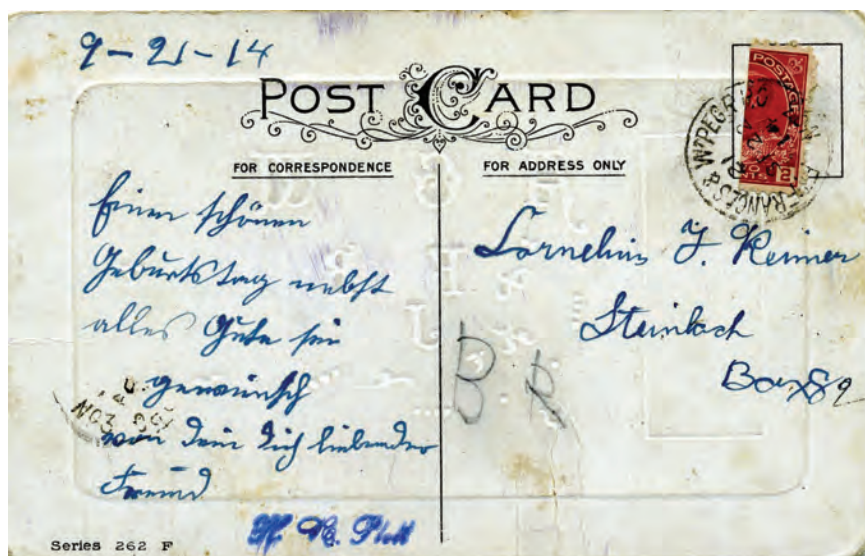 9-21-14
POST CARD
FOR CORRESPONDENCE
FOR ADDRESS ONLY
Einen schönen
Geburtstag nebst
alles Gute sei
gewünsch
von Dein Dich liebender
Freund
Cornelius J. Reimer
Steinbach
Box 82
B R
POSTAGE
2
Series 262 F